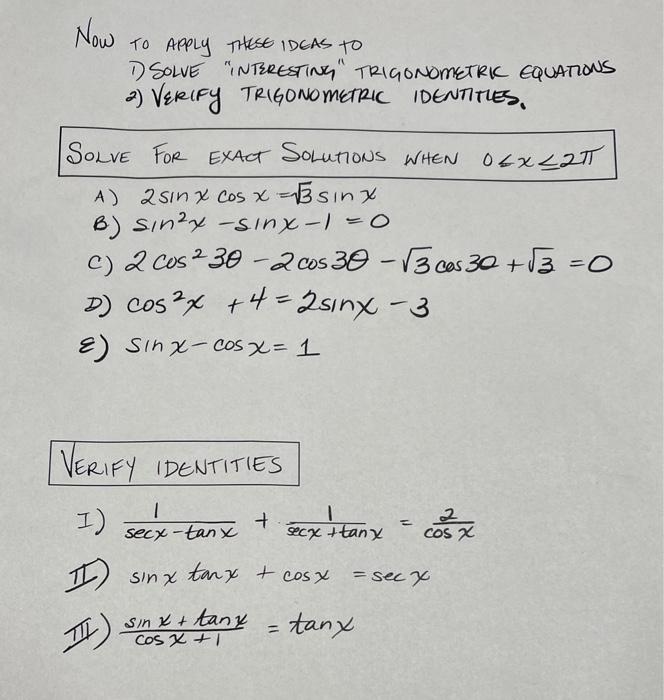 Now TO APPLY THESE IDEAS TO
1) SOLVE "INTERESTING" TRIGONOMETRIC EQUATIONS
2) VERIFY TRIGONOMETRIC IDENTITIES.
SOLVE FOR EXACT SOLUTIONS WHEN 0 ≤ x ≤ 2π
A) 2 sin x cos x = √3 sin x
B) sin²x - sinx - 1 = 0
C) 2 cos² 3θ - 2 cos 3θ - √3 cos 3θ + √3 = 0
D) cos²x + 4 = 2sinx - 3
E) sin x - cos x = 1
VERIFY IDENTITIES
I) 1/(secx - tanx) + 1/(secx + tanx) = 2/cos x
II) sin x tan x + cos x = sec x
III) (sin x + tan x)/(cos x + 1) = tan x